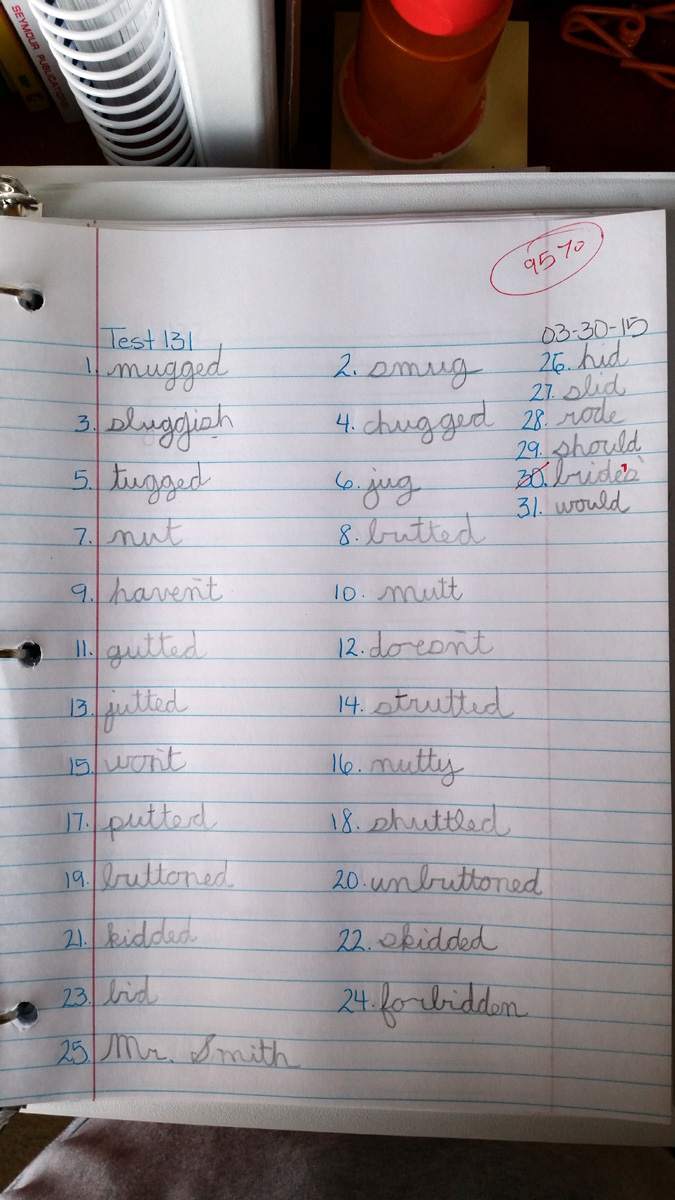 SEYMOUR PUBLICATIONS
95%
Test 131 03-30-15
1. mugged 2. smug 26. hid
27. slid
3. sluggish 4. chugged 28. rode
29. should
5. tugged 6. jug 30. bride's
31. would
7. nut 8. butted
9. haven't 10. mutt
11. gutted 12. doesn't
13. jutted 14. strutted
15. won't 16. nutty
17. putted 18. shuttled
19. buttoned 20. unbuttoned
21. kidded 22. skidded
23. bid 24. forbidden
25. Mr. Smith